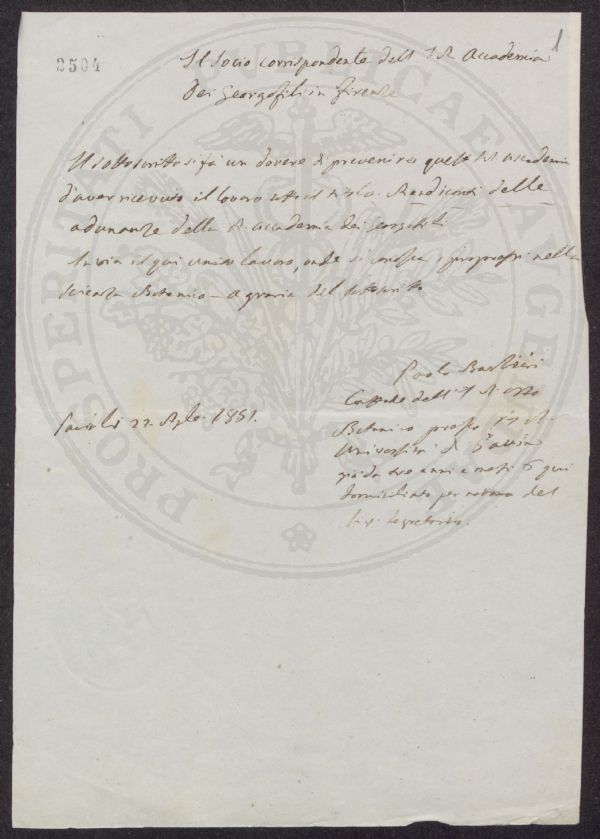 2504
1
Il Socio corrispondente dell' I. R. Accademia
dei Georgofili in Firenze
Il sottoscritto si fà un dovere di prevenire quest' I. R. accademia
d'aver ricevuto il lavoro sotto il titolo Rendiconti delle
adunanze della R. Accademia dei Georgofili
Invia il qui unito lavoro, onde si conosca i progressi nella
scienza Botanico — agraria del sottoscritto
Paolo Barbieri
Custode dell' I. R. Orto
Botanico presso l' I. R.
Università di Pavia
già da due anni e mesi 6 qui
domiciliato per norma del
Sig. Segretario.
22 1881.
PROSPERITATI PUBLICAE AUGENDAE